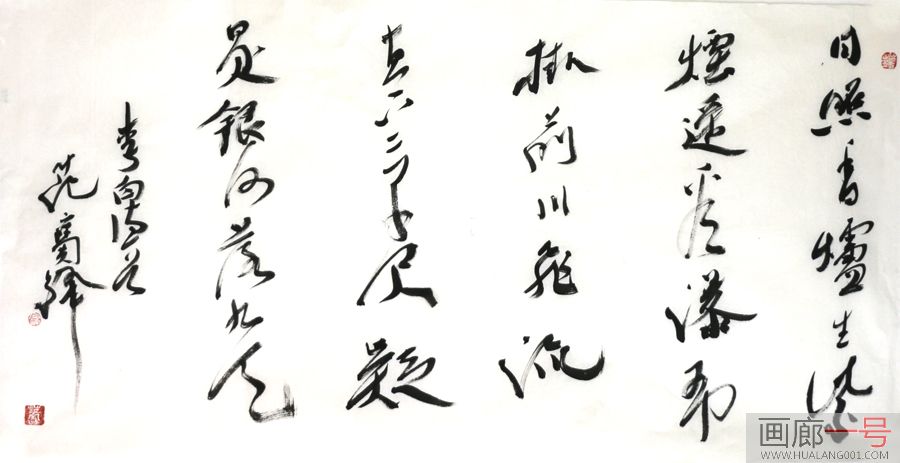 日照香爐生紫
煙遥看瀑布
掛前川飛流
直下三千尺疑
是銀河落九天
李白詩
范
画廊一号
WWW.HUALANG001.COM